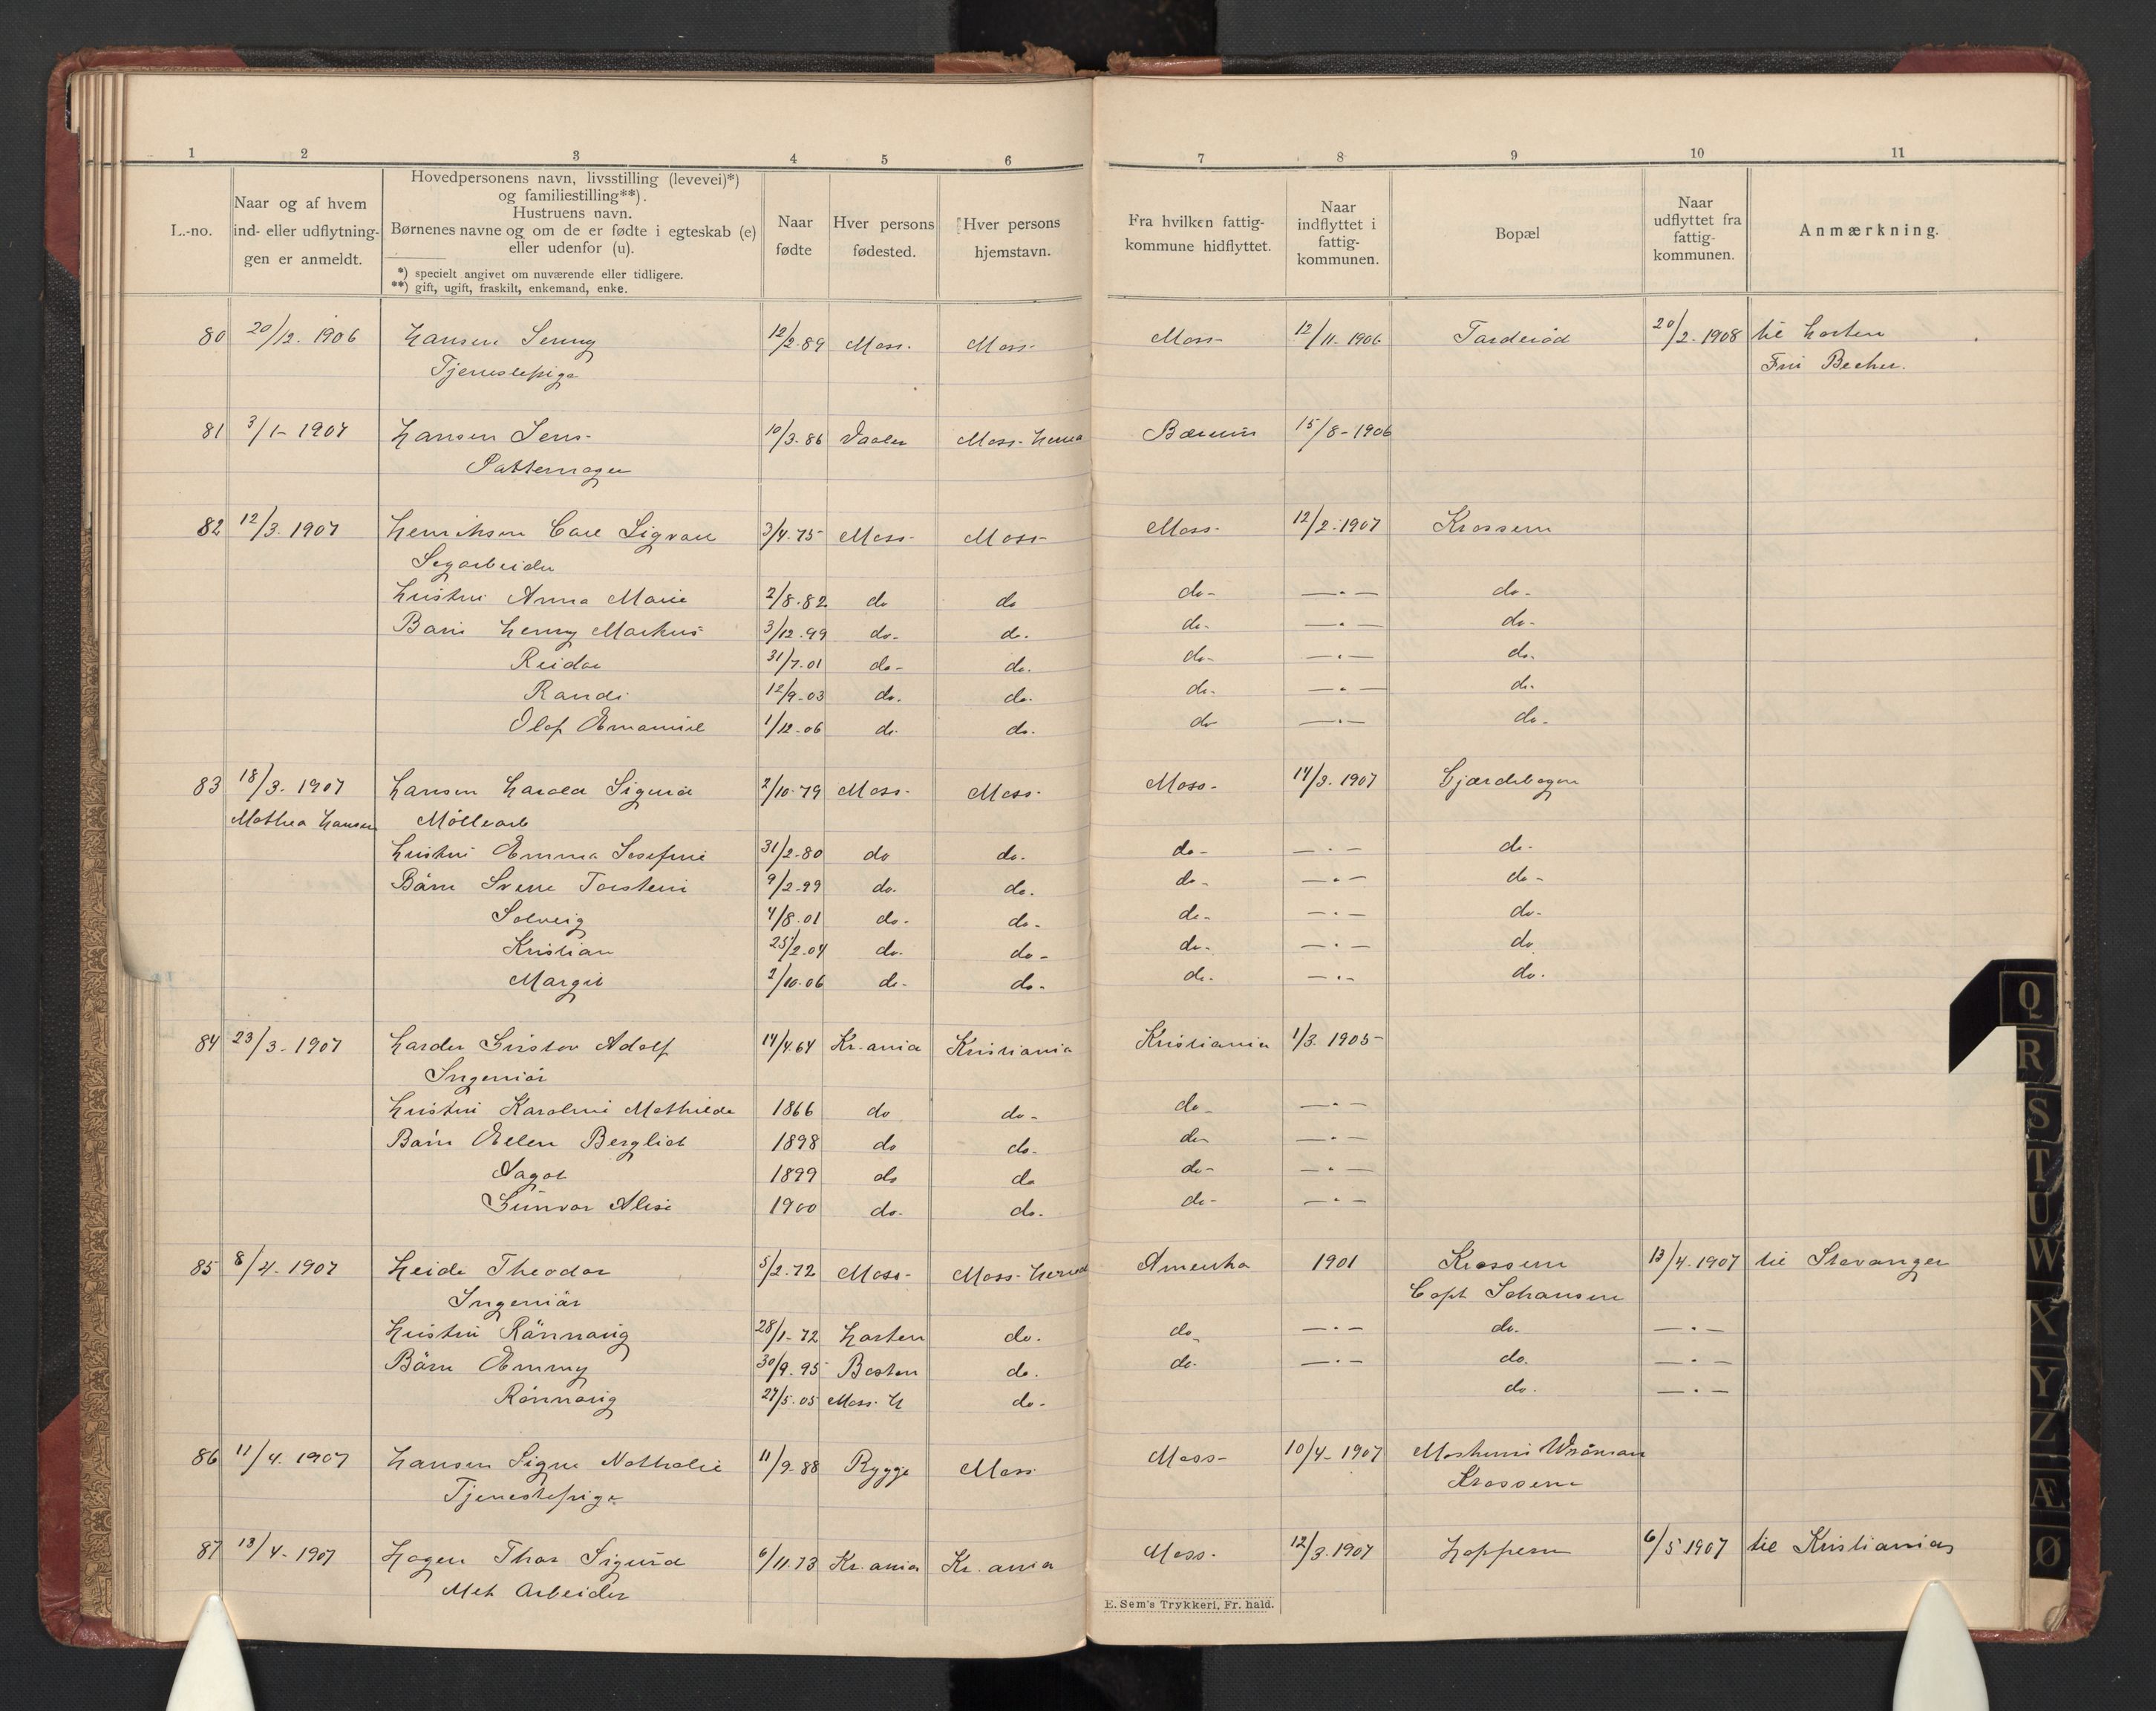 1 2 3 4 5 6 7 8 9 10 11
L.-no.
Naar og af hvem
ind- eller udflytnin-
gen er anmeldt.
Hovedpersonens navn, livsstilling (levevei)*)
og familiestilling**).
Hustruens navn.
Børnenes navne og om de er fødte i egteskab (e)
eller udenfor (u).
*) specielt angivet om nuværende eller tidligere.
**) gift, ugift, fraskilt, enkemand, enke.
Naar
fødte
Hver persons
fødested.
Hver persons
hjemstavn.
Fra hvilken fattig-
kommune hidflyttet.
Naar
indflyttet i
fattig-
kommunen.
Bopæl
Naar
udflyttet fra
fattig-
kommunen.
Anmærkning.
80 20/12. 1906 Hansen Jenny 12/2-89 Moss. Moss- Moss- 12/11-1906 Tarderød 20/2-1908 til Horten
Tjenestepige Fru Becher.
81 3/1-1907 Hansen Jens- 10/3-86 Vaaler Moss-Herred Bærum 15/8-1906
Pottemager
82 12/3-1907 Henriksen Carl Sigvart 3/4-75 Moss- Moss- Moss- 12/2-1907 Krossern
Segarbeider
Hustru Anna Marie 2/8-82 do do do- —·— do-
Barn Henry Markus 3/12-99 do- do. do- —·— do-
Reidar 31/7-01 do- do. do- —·— do.
Randi 12/9-03 do. do. do- —·— do-
Olaf Emanuel 1/12-06 do. do. do —·— do-
83 18/3-1907 Hansen Harald Sigurd 2/10-79 Moss- Moss- Moss- 14/3-1907 Gjærdebagen
Mathea Hansen Möllearb
Hustru Emma Josefine 31/2-80 do do. do- —·— do-
Börn Sverre Torstein 9/2-99 do. do. do- —·— do-
Solveig 4/8-01 do- do- do- —·— do-
Kristian 25/2-04 do. do- do- —·— do
Margit 2/10-06 do- do- do- —·— do.
84 23/3-1907 Harder Gustav Adolf 14/4.64 Kr.ania Kristiania Kristiania 1/3-1905-
Ingeniör
Hustru Karoline Mathilde 1866 do do- do- —·—
Börn Ellen Bergliot 1898 do do- do- —·—
Dagot 1899 do do do- —·—
Gunvor Alise 1900 do- do. do- —·—
85 8/4-1907 Heide Theodor 5/2-72 Moss- Moss-Herred Amerika 1901 Krossern 13/4-1907 til Stavanger
Ingeniör Capt Johansen
Hustru Rännaug 28/1-72 Horten do. do- —·— do. —·—
Börn Emmy 30/9-95 Boston do. do- —·— do. —·—
Rönnaug 27/5-05 Moss-H do- do. —·—
86 11/4-1907 Hansen Signe Nathalie 11/9-88 Rygge Moss Moss- 10/4-1907
Tjenestepige Krossern
87 13/4-1907 Hagen Thor Sigurd 6/11-73 Kr.ania Kr.ania Moss- 12/3-1907 Hoppern 6/5 1907 til Kristiania
Mek Arbeider
E. Sem's Trykkeri, Fr. hald.
Q
R
S
T
U
W
X
Y
Z
Æ
Ø